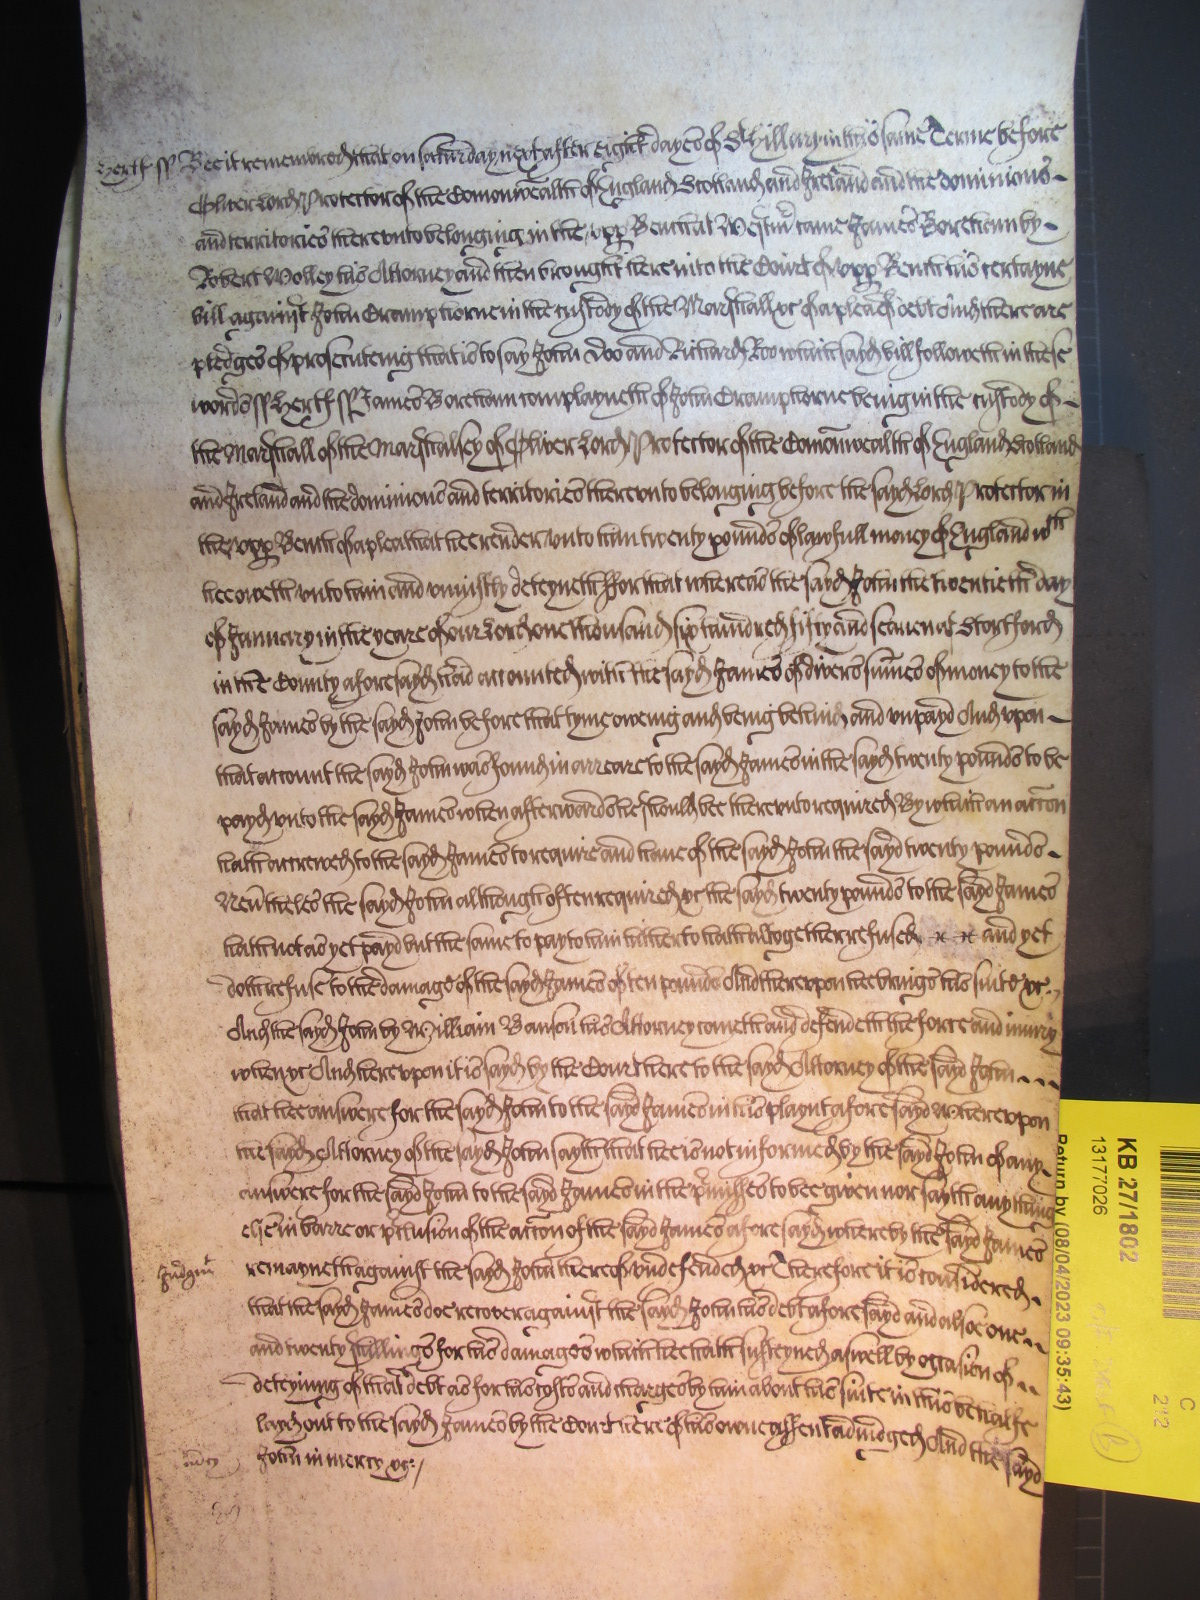 Hertf ss Bee it remembred that on Saturday next after eight dayes of St Hillary in this same Terme before
Oliver Lord Protector of the Comonwealth of England Scotland and Ireland and the dominions
and territories therevnto belonging in the vpp Bench at Westmr came James Boreham by
Robert Wolley his Attorney and then brought here into the Court of vpp Bench his certayne
bill against John Cramphorne in the custody of the Marshall &c of a plea of debt And there are
pledges of prosecuteing that is to say John Doo and Richard Roo which sayd bill followeth in these
words ss Hertf ss James Boreham complayneth of John Cramphorne being in the custody of
the Marshall of the Marshalsey of Oliver Lord Protector of the Comonwealth of England Scotland
and Ireland and the dominions and territories therevnto belonging before the sayd Lord Protector in
the vpp Bench of a plea that hee render vnto him twenty pounds of lawfull money of England wch
hee oweth vnto him and vniustly deteyneth ffor that whereas the sayd John the twentieth day
of January in the yeare of our Lord one thousand six hundred fifty and seaven at Stortford
in the County aforesayd had accounted with the sayd James of divers sumes of money to the
sayd James by the sayd John before that tyme oweing and being behind and vnpayd And vpon
that account the sayd John was found in arreare to the sayd James in the sayd twenty pounds to be
payd vnto the sayd James when afterwards he should bee therevnto required By which an accon
hath accrewed to the sayd James to require and have of the sayd John the sayd twenty pounds
Nevtheles the sayd John although often required &c the sayd twenty pounds to the sayd James
hath not as yet payd but the same to pay to him hitherto hath altogether refused and yet
doth refuse to the damage of the sayd James of ten pounds And therevpon hee brings his suite &c
And the sayd John by William Banson his Attorney cometh and defendeth the force and iniury
when &c And herevpon it is sayd by the Court here to the sayd Attorney of the sayd John
that hee answere for the sayd John to the sayd James in his playnt aforesayd Wherevpon
the sayd Attorney of the sayd John sayth that hee is not informed by the sayd John of any
answere for the sayd John to the sayd James in the pmisses to bee given nor sayth any thing
else in barre or pclusion of the accon of the sayd James aforesayd whereby the sayd James
Judgmt remayneth against the sayd John thereof vndefended &c Therefore it is considered
that the sayd James doe recover against the sayd John his debt aforesayd and alsoe one
and twenty shillings for his damages which hee hath susteyned aswell by occasion of
deteyning of that debt as for his costs and charges by him about his suite in this behalfe
layd out to the sayd James by the Court here of his owne assent adiudged And the sayd
mcy John in mercy &c
KB 27/1802
13177026
Return by (08/04/2023 09:35:43)
C